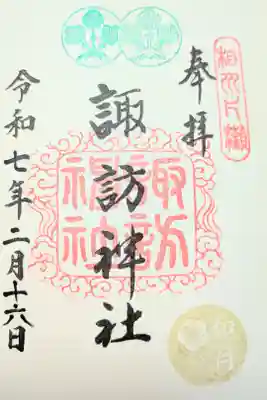 相州片瀬
奉拝
諏訪神社
諏訪
神社
令和七年二月十六日
如月